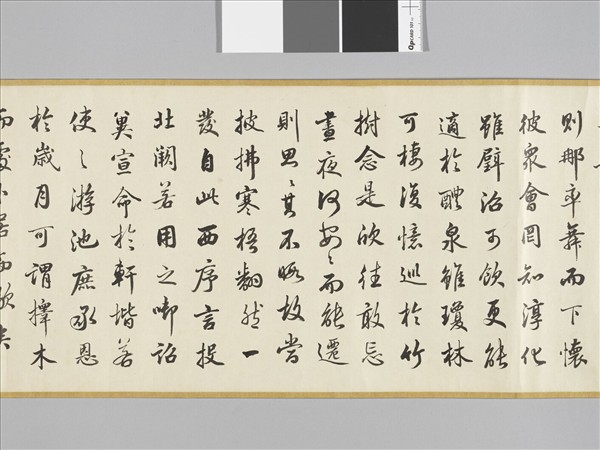 則那率舞而下懷
彼衆會罔知淳化
雖璧沼可飲更能
適於醴泉雖瓊林
可棲復憶巡於竹
樹念是欲往敢忘
晝夜何安〻而能遷
則思〻其不暇故當
披拂寒梧翻然一
發自此西序言投
北闕若用之啣詔
冀宣命於軒堦若
使之游池庶承恩
於歲月可謂擇木